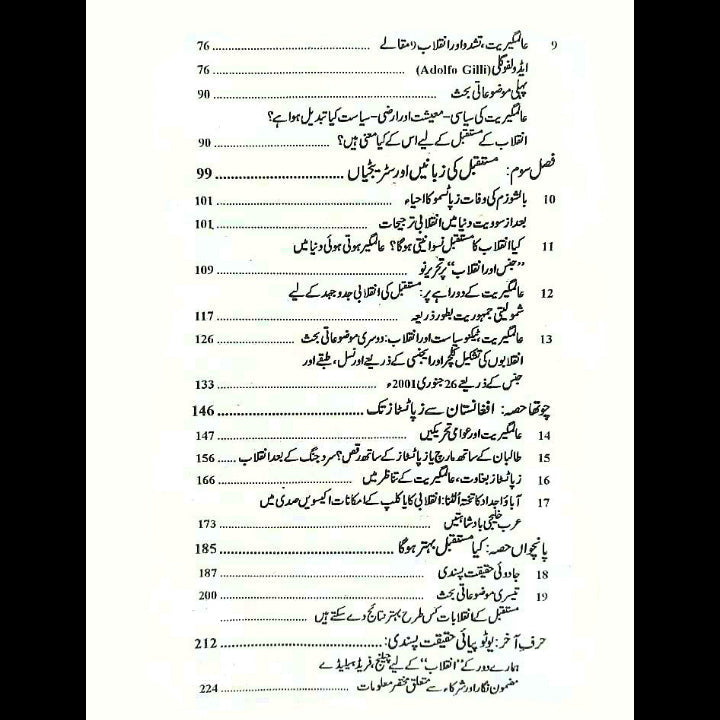 9 عالمگیریت، تشدد اور انقلاب 9 مقالے ........ 76
ایڈولفو گلی (Adolfo Gilli) ........ 76
پہلی موضوعاتی بحث ........ 90
عالمگیریت کی سیاسی-معیشت اور ارضی-سیاست کیا تبدیل ہوا ہے؟
انقلاب کے مستقبل کے لیے اس کے کیا معنی ہیں؟ ........ 90
فصل سوم: مستقبل کی زبانیں اور سٹریٹجیاں ........ 99
10 بالشوزم کی وفات زپاٹسمو کا احیاء ........ 101
بعد از سوویت دنیا میں انقلابی ترجیحات ........ 101
11 کیا انقلاب کا مستقبل نسوانیتی ہوگا؟ عالمگیر ہوتی ہوئی دنیا میں
”جنس اور انقلاب“ پر تحریر نو ........ 109
12 عالمگیریت کے دوراہے پر: مستقبل کی انقلابی جدوجہد کے لیے
شمولیتی جمہوریت بطور ذریعہ ........ 117
13 عالمگیریت، ٹیکنو سیاست اور انقلاب: دوسری موضوعاتی بحث ........ 126
انقلابوں کی تشکیل کلچر اور ایجنسی کے ذریعے اور نسل، طبقے اور
جنس کے ذریعے 26 جنوری 2001ء ........ 133
چوتھا حصہ: افغانستان سے زپاٹسٹاز تک ........ 146
14 عالمگیریت اور عوامی تحریکیں ........ 147
15 طالبان کے ساتھ مارچ یا زپاٹسٹاز کے ساتھ رقص؟ سرد جنگ کے بعد انقلاب ...... 156
16 زپاٹسٹاز بغاوت، عالمگیریت کے تناظر میں ........ 166
17 آباؤ اجداد کا تختہ اُلٹنا: انقلابی کایا کلپ کے امکانات اکیسویں صدی میں
عرب خلیجی بادشاہتیں ........ 173
پانچواں حصہ: کیا مستقبل بہتر ہوگا ........ 185
18 جادوئی حقیقت پسندی ........ 187
19 تیسری موضوعاتی بحث ........ 200
مستقبل کے انقلابات کس طرح بہتر نتائج دے سکتے ہیں ........
حرف آخر: یوٹوپیائی حقیقت پسندی: ........ 212
ہمارے دور کے ”انقلاب“ کے لیے چیلنج، فریڈ ہیلیڈے
مضمون نگار اور شرکاء سے متعلق مختصر معلومات ........ 224